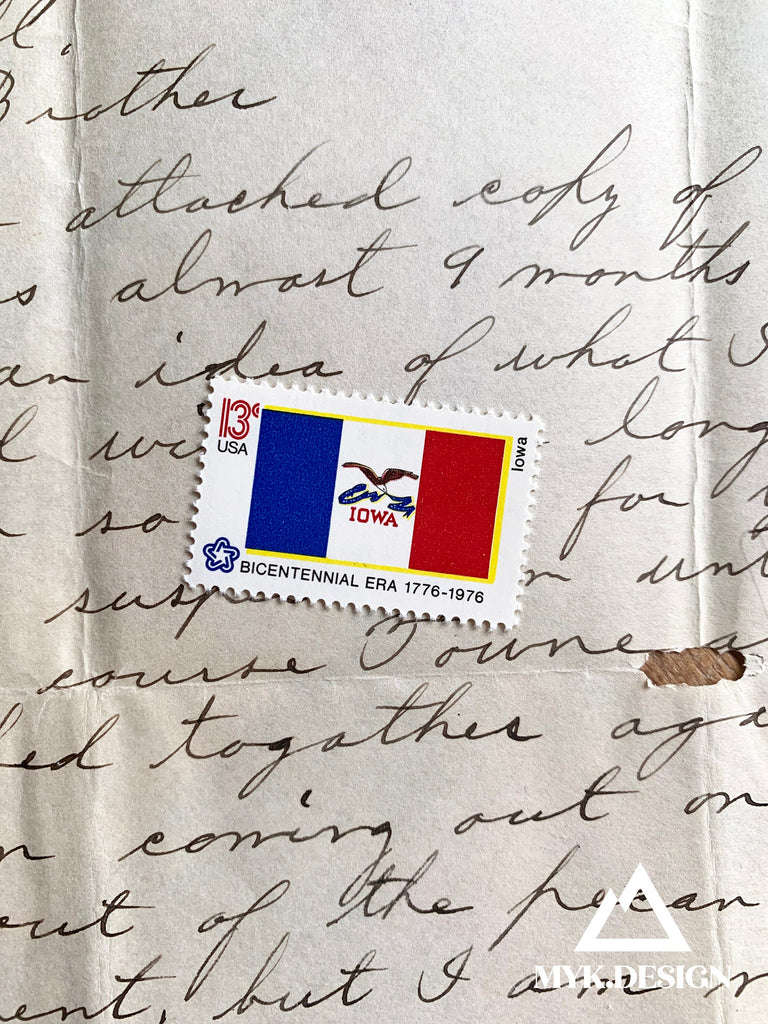 Brother
attached copy of
almost 9 months
an idea of what I
long
so for
suspe unt
course Towne a
together aga
coming out on
out of the pecan
but I am
13c
USA
Iowa
IOWA
BICENTENNIAL ERA 1776-1976
MYK.DESIGN